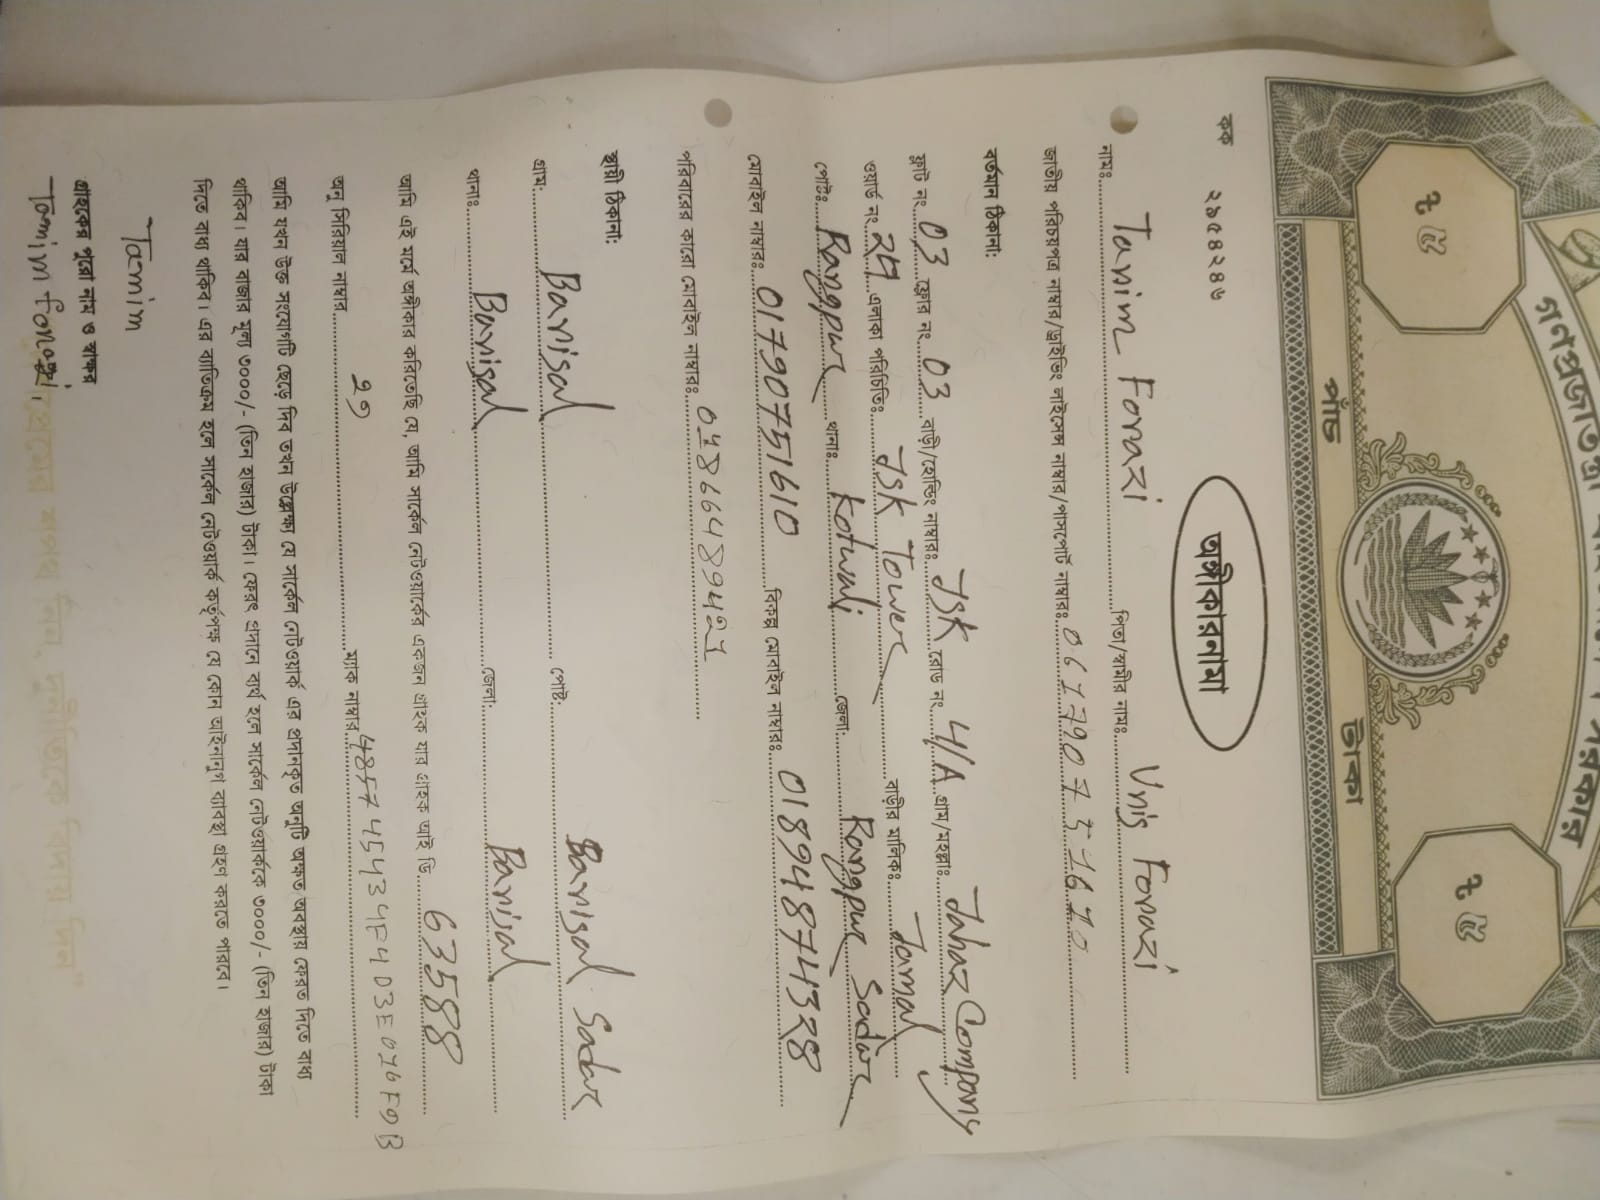 গণপ্রজাতন্ত্রী বাংলাদেশ সরকার
৳ ৫
৳ ৫
পাঁচ টাকা
কক ২৯৫৪২৪৬
অঙ্গীকারনামা
নামঃ Tamim Forazi পিতা/স্বামীর নামঃ Unis Forazi
জাতীয় পরিচয়পত্র নাম্বার/ড্রাইভিং লাইসেন্স নাম্বার/পাসপোর্ট নাম্বারঃ
বর্তমান ঠিকানা:
ফ্লাট নং: 03 ফ্লোর নং 03 বাড়ী/হোল্ডিং নাম্বারঃ JSK রোড নং 4/A গ্রাম/মহল্লাঃ Jahaz Company
ওয়ার্ড নং: 24 এলাকা পরিচিতিঃ JSK Tower বাড়ীর মালিকঃ Jamal
পোষ্টঃ Rangpur থানাঃ Kotwali জেলা: Rangpur Sadar
মোবাইল নাম্বারঃ 01790751610 বিকল্প মোবাইল নাম্বারঃ 01894874328
পরিবারের কারো মোবাইল নাম্বারঃ
স্থায়ী ঠিকানা:
গ্রাম: Barisal পোষ্ট: Barisal Sadar
থানাঃ Barisal জেলা: Barisal
আমি এই মর্মে অঙ্গীকার করিতেছি যে, আমি সার্কেল নেটওয়ার্কের একজন গ্রাহক যার গ্রাহক আই ডি 63588
অনু সিরিয়াল নাম্বার ২৩ ম্যাক নাম্বার
আমি যখন উক্ত সংযোগটি ছেড়ে দিব তখন উল্লেক্ষ্য যে সার্কেল নেটওয়ার্ক এর প্রদানকৃত অনুটি অক্ষত অবস্থায় ফেরত দিতে বাধ্য
থাকিব। যার বাজার মূল্য ৩০০০/- (তিন হাজার) টাকা। ফেরৎ প্রদানে ব্যর্থ হলে সার্কেল নেটওয়ার্ককে ৩০০০/- (তিন হাজার) টাকা
দিতে বাধ্য থাকিব। এর ব্যতিক্রম হলে সার্কেল নেটওয়ার্ক কর্তৃপক্ষ যে কোন আইনানুগ ব্যবস্থা গ্রহণ করতে পারবে।
Tamim
গ্রাহকের পুরো নাম ও স্বাক্ষর
Tamim Forazi
শপথ নিন, দুর্নীতিকে বিদায় দিন"